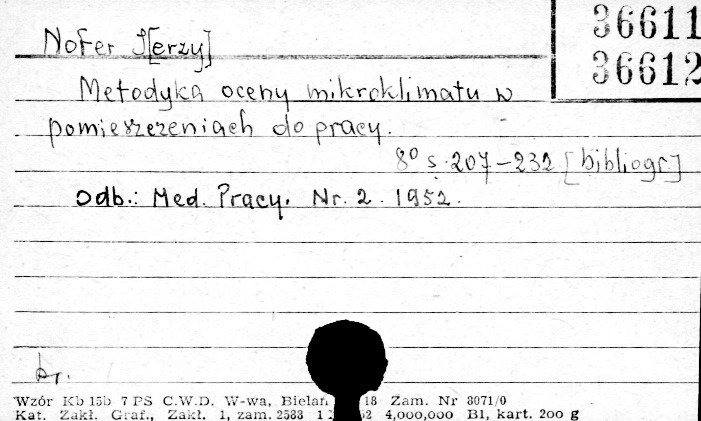 36611
36612
Nofer J[erzy]
Metodyka oceny mikroklimatu w
pomieszczeniach do pracy.
8° s. 207-232 [bibliogr.]
Odb.: Med. Pracy. Nr. 2. 1952.
Wzór Kb 15b 7 PS C.W.D. W-wa, Bielań 18 Zam. Nr 8071/0
Kat. Zakł. Graf., Zakł. 1, zam. 2588 52 4,000,000 B1, kart. 200 g